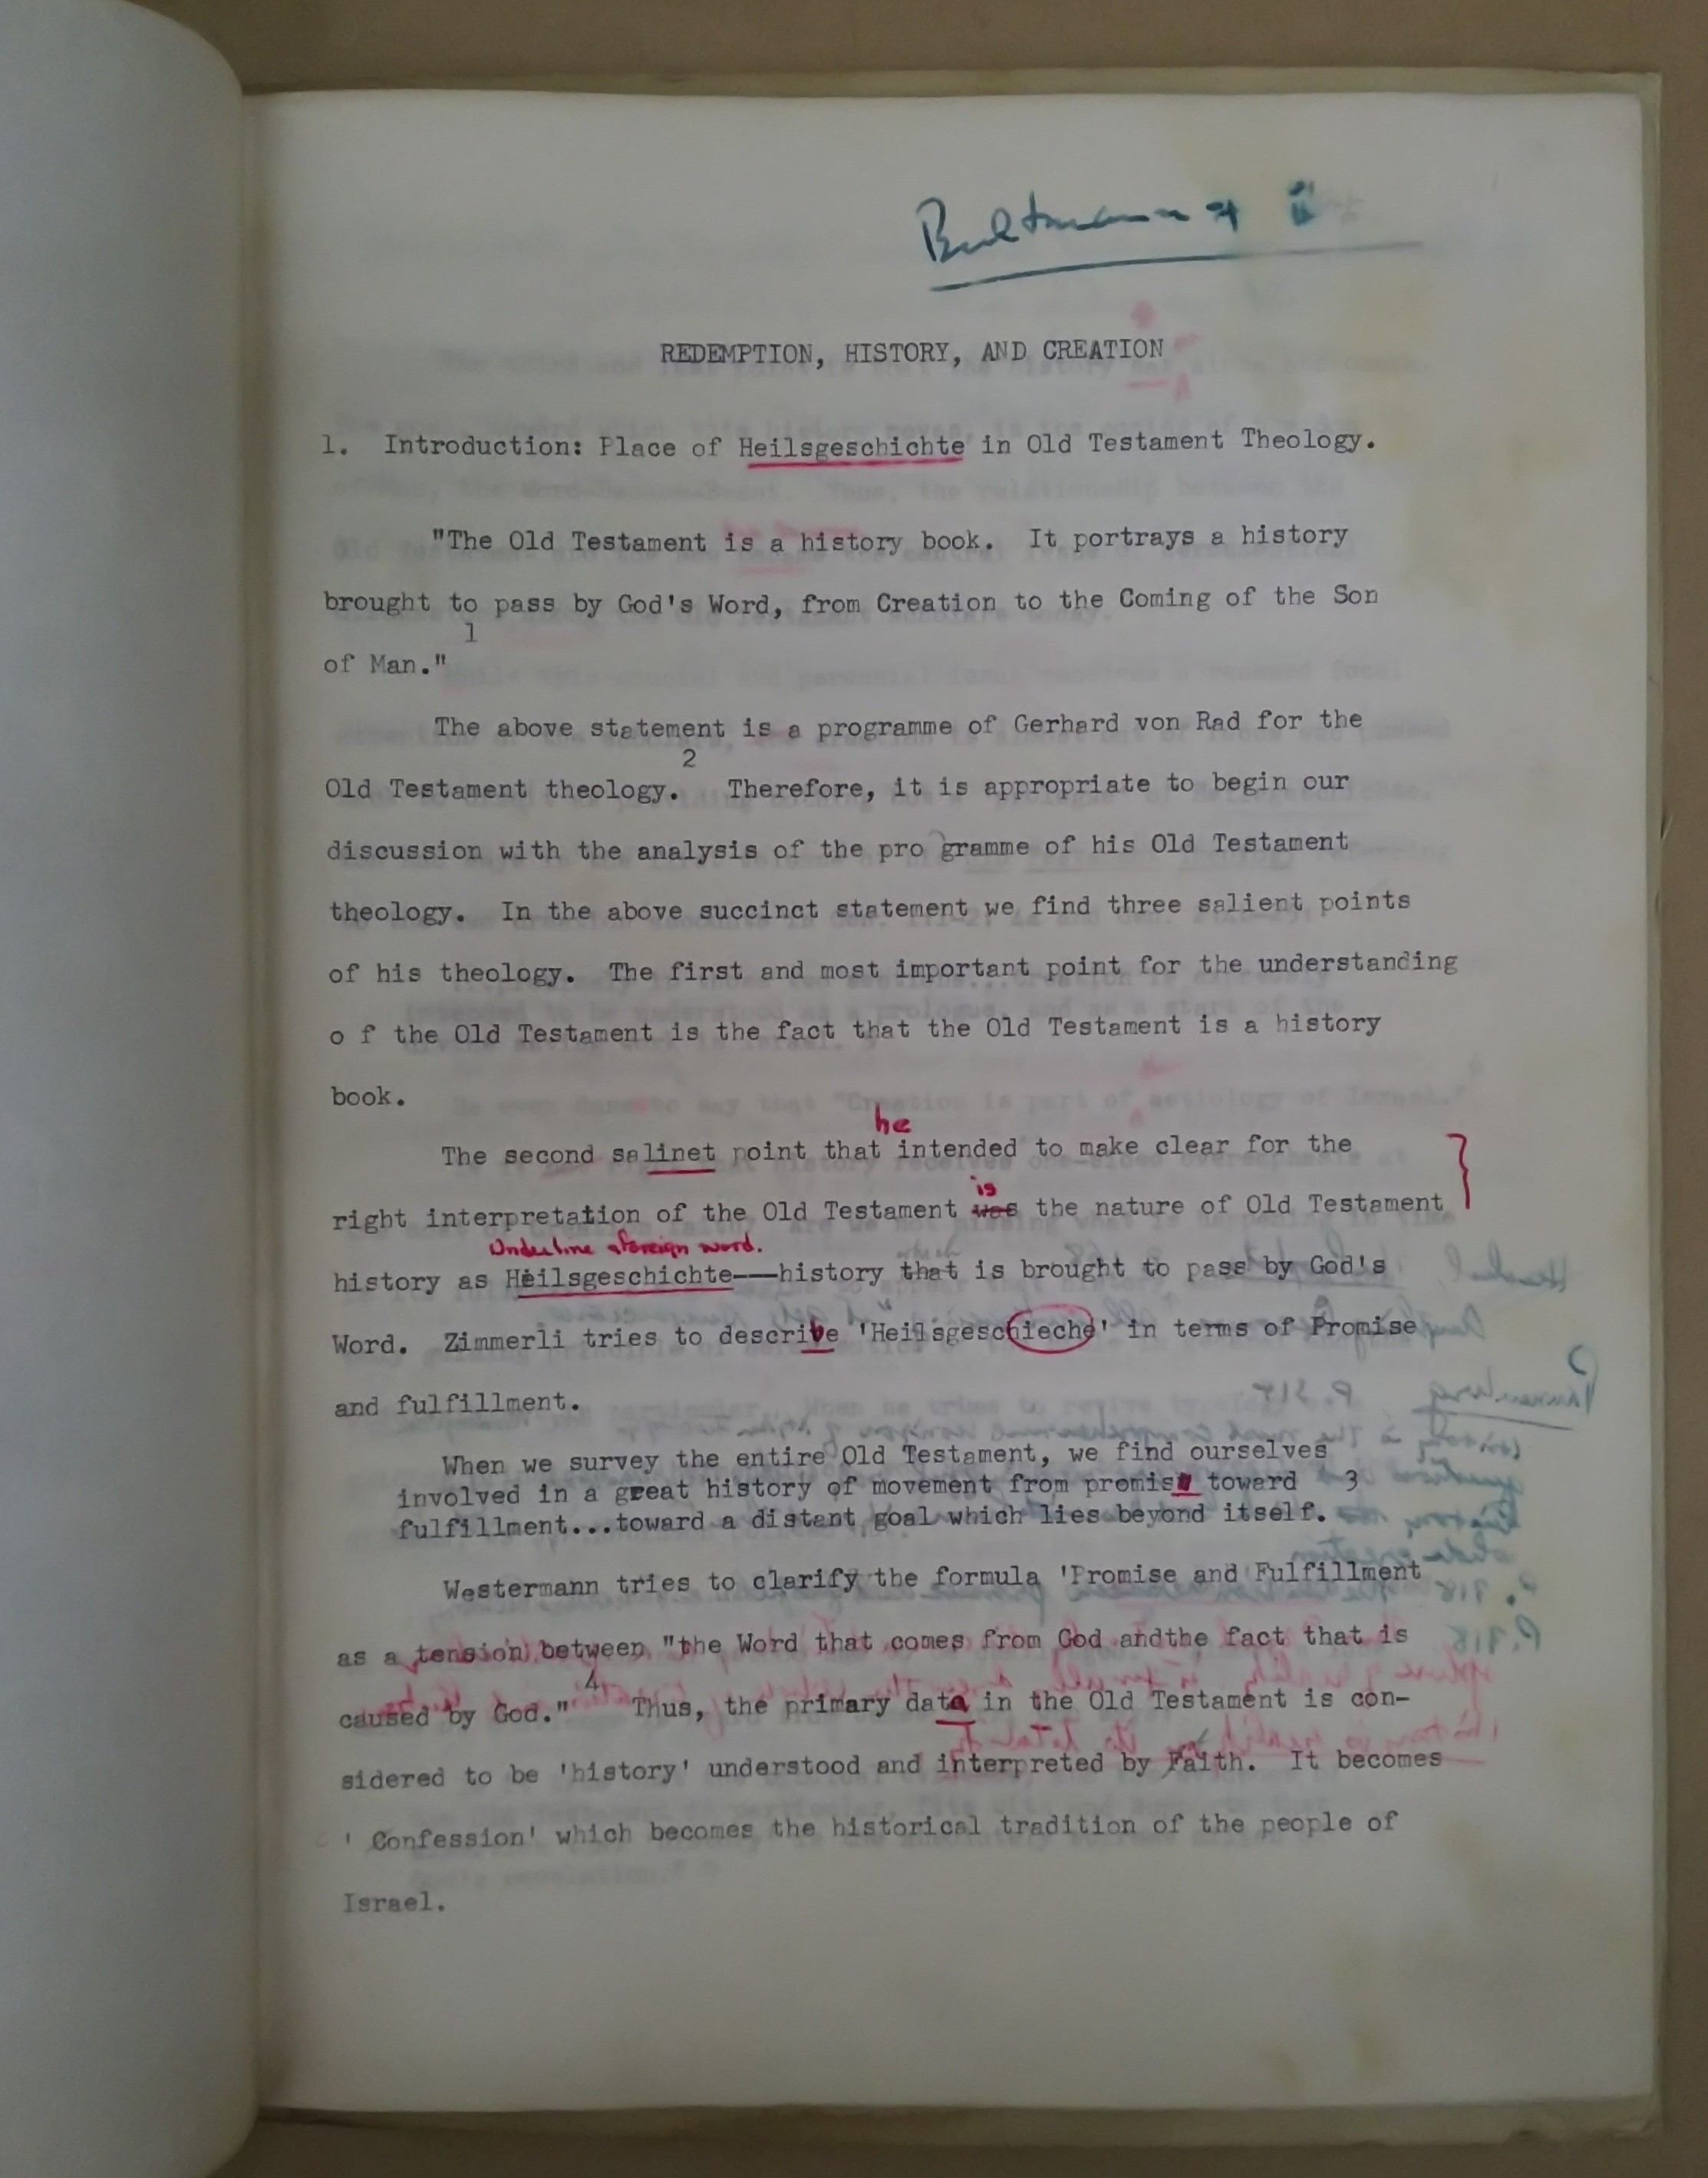 Bultmann
REDEMPTION, HISTORY, AND CREATION
1. Introduction: Place of Heilsgeschichte in Old Testament Theology.
"The Old Testament is a history book. It portrays a history
brought to pass by God's Word, from Creation to the Coming of the Son
1
of Man."
The above statement is a programme of Gerhard von Rad for the
2
Old Testament theology. Therefore, it is appropriate to begin our
discussion with the analysis of the pro gramme of his Old Testament
theology. In the above succinct statement we find three salient points
of his theology. The first and most important point for the understanding
o f the Old Testament is the fact that the Old Testament is a history
book.
he
The second salinet point that intended to make clear for the
is
right interpretation of the Old Testament was the nature of Old Testament
Underline foreign word.
history as Heilsgeschichte---history that is brought to pass by God's
Word. Zimmerli tries to describe 'Heilsgeschieche' in terms of Promise
and fulfillment.
When we survey the entire Old Testament, we find ourselves
involved in a great history of movement from promise toward 3
fulfillment...toward a distant goal which lies beyond itself.
Westermann tries to clarify the formula 'Promise and Fulfillment
as a tension between "the Word that comes from God andthe fact that is
4
caused by God." Thus, the primary data in the Old Testament is con-
sidered to be 'history' understood and interpreted by Faith. It becomes
' Confession' which becomes the historical tradition of the people of
Israel.